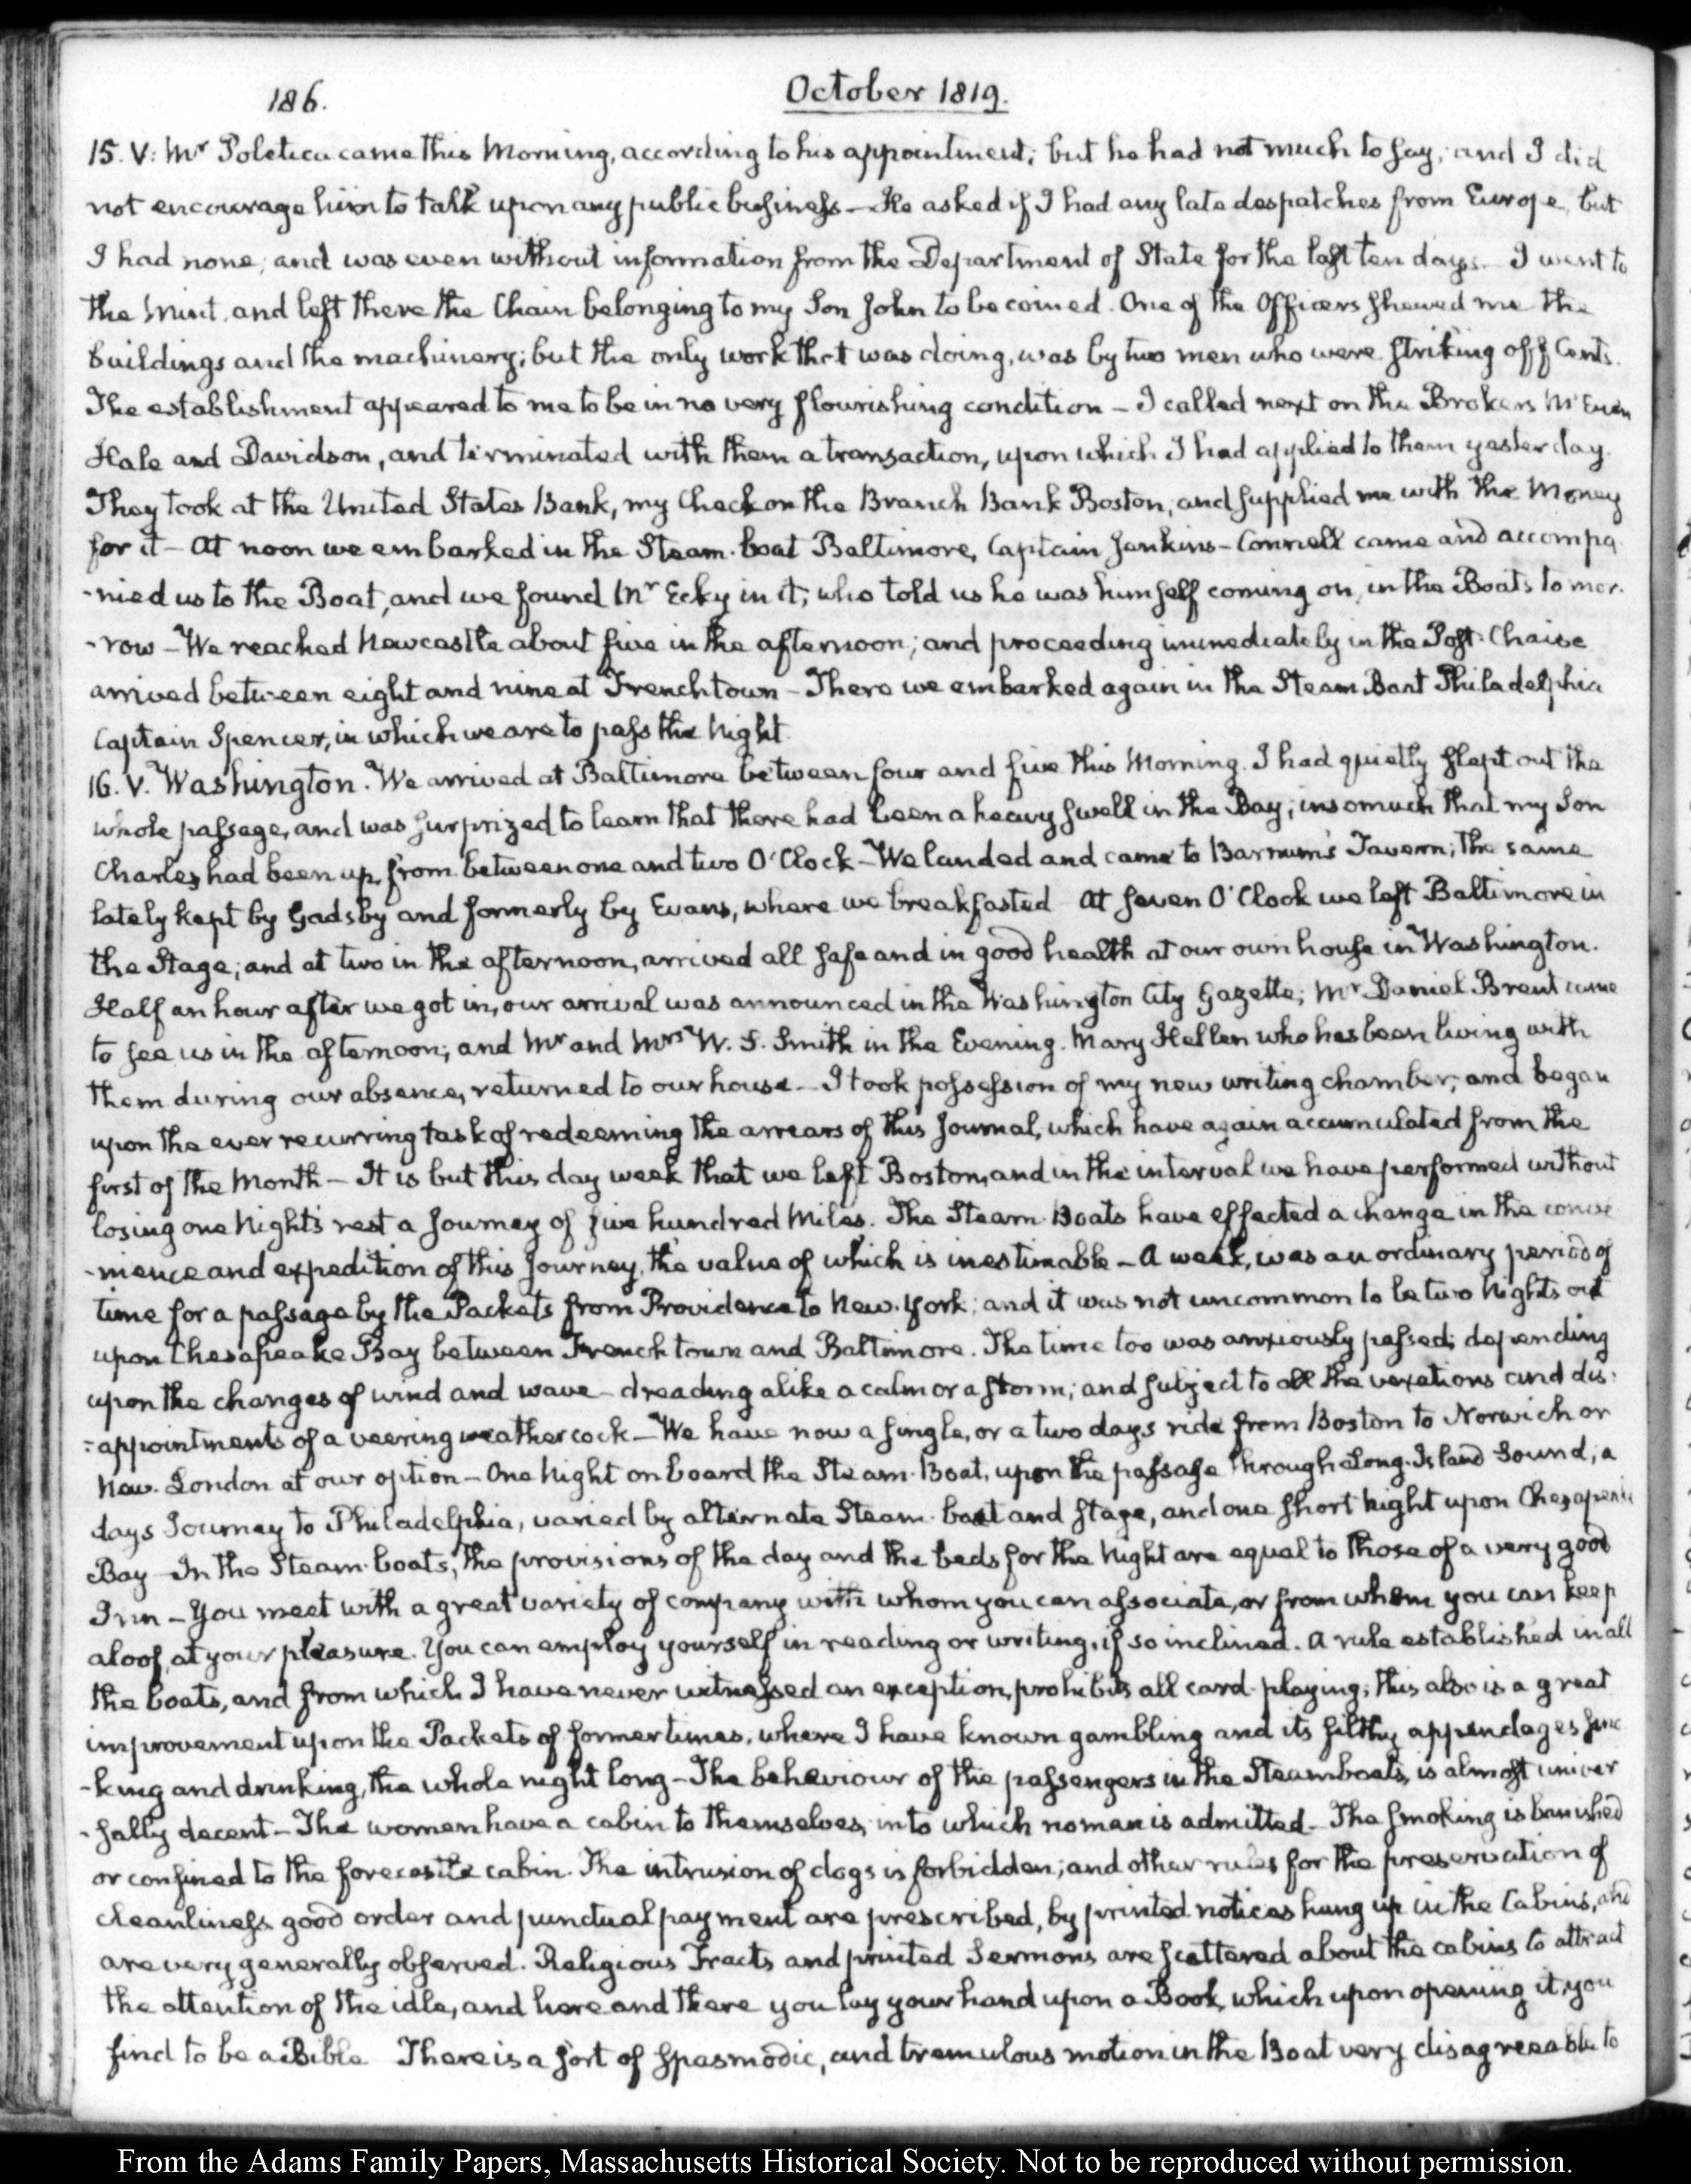 186.
October 1819.
15. V: Mr Poletica came this Morning, according to his appointment; but he had not much to say; and I did
not encourage him to talk upon any public business — He asked if I had any late despatches from Europe, but
I had none; and was even without information from the Department of State for the last ten days. I went to
the Mint, and left there the Chain belonging to my Son John to be coined. One of the Officers shewed me the
buildings and the machinery; but the only work that was doing, was by two men who were striking off Cents.
The establishment appeared to me to be in no very flourishing condition — I called next on the Brokers McEuen
Hale and Davidson, and terminated with them a transaction, upon which I had applied to them yesterday.
They took at the United States Bank, my Check on the Branch Bank Boston, and supplied me with the Money
for it — At noon we embarked in the Steam-boat Baltimore, Captain Jenkins — Connell came and accompa
-nied us to the Boat, and we found Mr Ecky in it, who told us he was himself coming on, in the Boats to mor-
-row — We reached Newcastle about five in the afternoon; and proceeding immediately in the Post-Chaise
arrived between eight and nine at Frenchtown — There we embarked again in the Steam Boat Philadelphia
Captain Spencer, in which we are to pass the Night.
16. V. Washington. We arrived at Baltimore between four and five this Morning. I had quietly slept out the
whole passage, and was surprized to learn that there had been a heavy swell in the Bay; insomuch that my Son
Charles had been up, from between one and two O'Clock — We landed and came to Barnum's Tavern; the same
lately kept by Gadsby and formerly by Evans, where we breakfasted At seven O'Clock we left Baltimore in
the Stage; and at two in the afternoon, arrived all safe and in good health at our own house in Washington.
Half an hour after we got in, our arrival was announced in the Washington City Gazette; Mr Daniel Brent came
to see us in the afternoon; and Mr and Mrs W. S. Smith in the Evening. Mary Hellen who has been living with
them during our absence, returned to our house — I took possession of my new writing chamber, and began
upon the ever recurring task of redeeming the arrears of this Journal, which have again accumulated from the
first of the Month — It is but this day week that we left Boston, and in the interval we have performed without
losing one Night's rest a Journey of five hundred Miles. The Steam-Boats have effected a change in the conve
-nience and expedition of this Journey, the value of which is inestimable — A week, was an ordinary period of
time for a passage by the Packets from Providence to New-York; and it was not uncommon to be two Nights out
upon Chesapeake Bay between Frenchtown and Baltimore. The time too was anxiously passed; depending
upon the changes of wind and wave — dreading alike a calm or a storm; and subject to all the vexations and dis-
-appointments of a veering weathercock — We have now a single, or a two days ride from Boston to Norwich or
New-London at our option — One Night on board the Steam-Boat, upon the passage through Long-Island Sound; a
days Journey to Philadelphia, varied by alternate Steam-boat and stage, and one short Night upon Chesapeake
Bay — In the Steam-boats, the provisions of the day and the beds for the Night are equal to those of a very good
Inn — You meet with a great variety of company with whom you can associate, or from whom you can keep
aloof, at your pleasure. You can employ yourself in reading or writing, if so inclined. A rule established in all
the boats, and from which I have never witnessed an exception, prohibits all card-playing; this also is a great
improvement upon the Packets of former times, where I have known gambling and its filthy appendages smo
-king and drinking, the whole night long — The behaviour of the passengers in the Steamboats, is almost univer
-sally decent — The women have a cabin to themselves, into which no man is admitted — The smoking is banished
or confined to the forecastle cabin. The intrusion of dogs is forbidden; and other rules for the preservation of
cleanliness good order and punctual payment are prescribed, by printed notices hung up in the Cabins, and
are very generally observed. Religious Tracts and printed Sermons are scattered about the cabins to attract
the attention of the idle, and here and there you lay your hand upon a Book, which upon opening it, you
find to be a Bible There is a sort of spasmodic, and tremulous motion in the Boat very disagreeable to
From the Adams Family Papers, Massachusetts Historical Society. Not to be reproduced without permission.